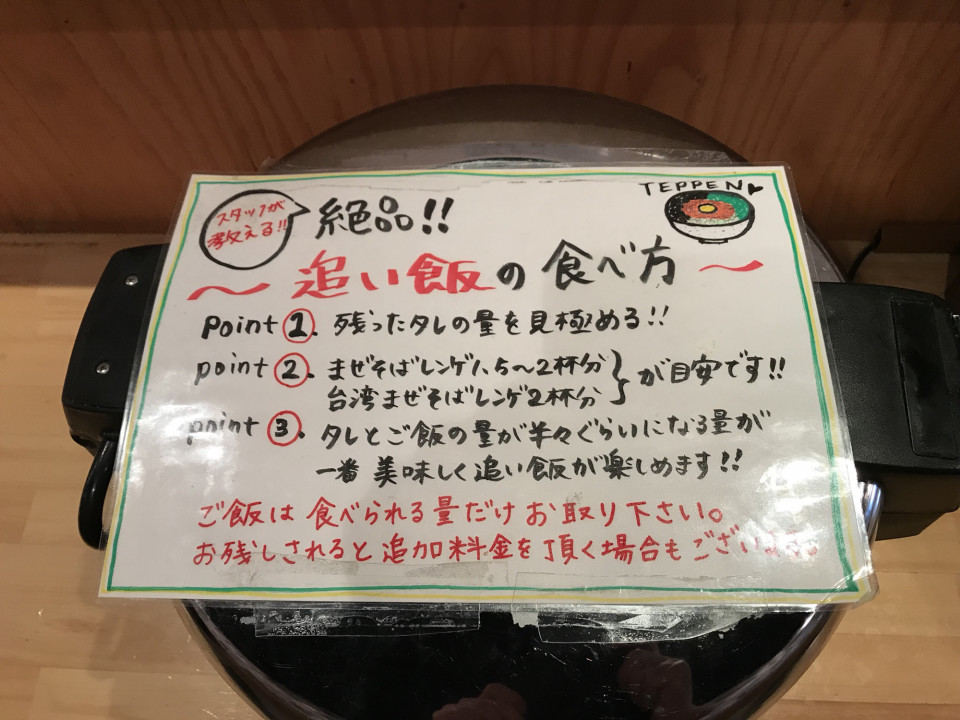 スタッフが
教える!!
絶品!!
TEPPEN
〜追い飯の食べ方〜
point ①. 残ったタレの量を見極める!!
point ②. まぜそばレンゲ1、5〜2杯分
台湾まぜそばレンゲ2杯分
}が目安です!!
point ③. タレとご飯の量が半々ぐらいになる量が
一番美味しく追い飯が楽しめます!!
ご飯は食べられる量だけお取り下さい。
お残しされると追加料金を頂く場合もございます。